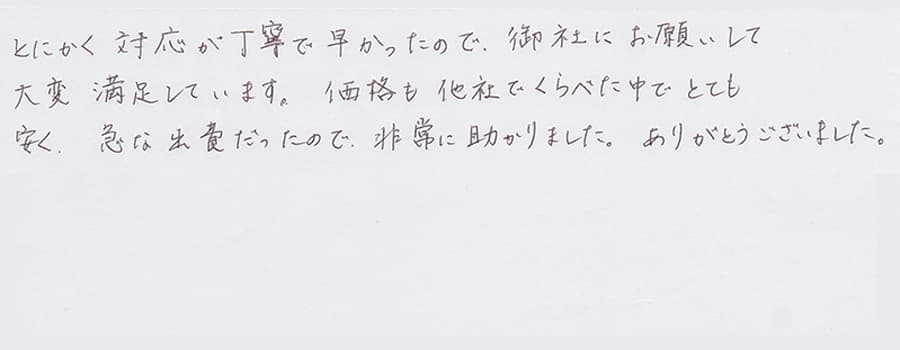 とにかく対応が丁寧で早かったので、御社にお願いして
大変満足しています。価格も他社でくらべた中でとても
安く、急な出費だったので、非常に助かりました。ありがとうございました。